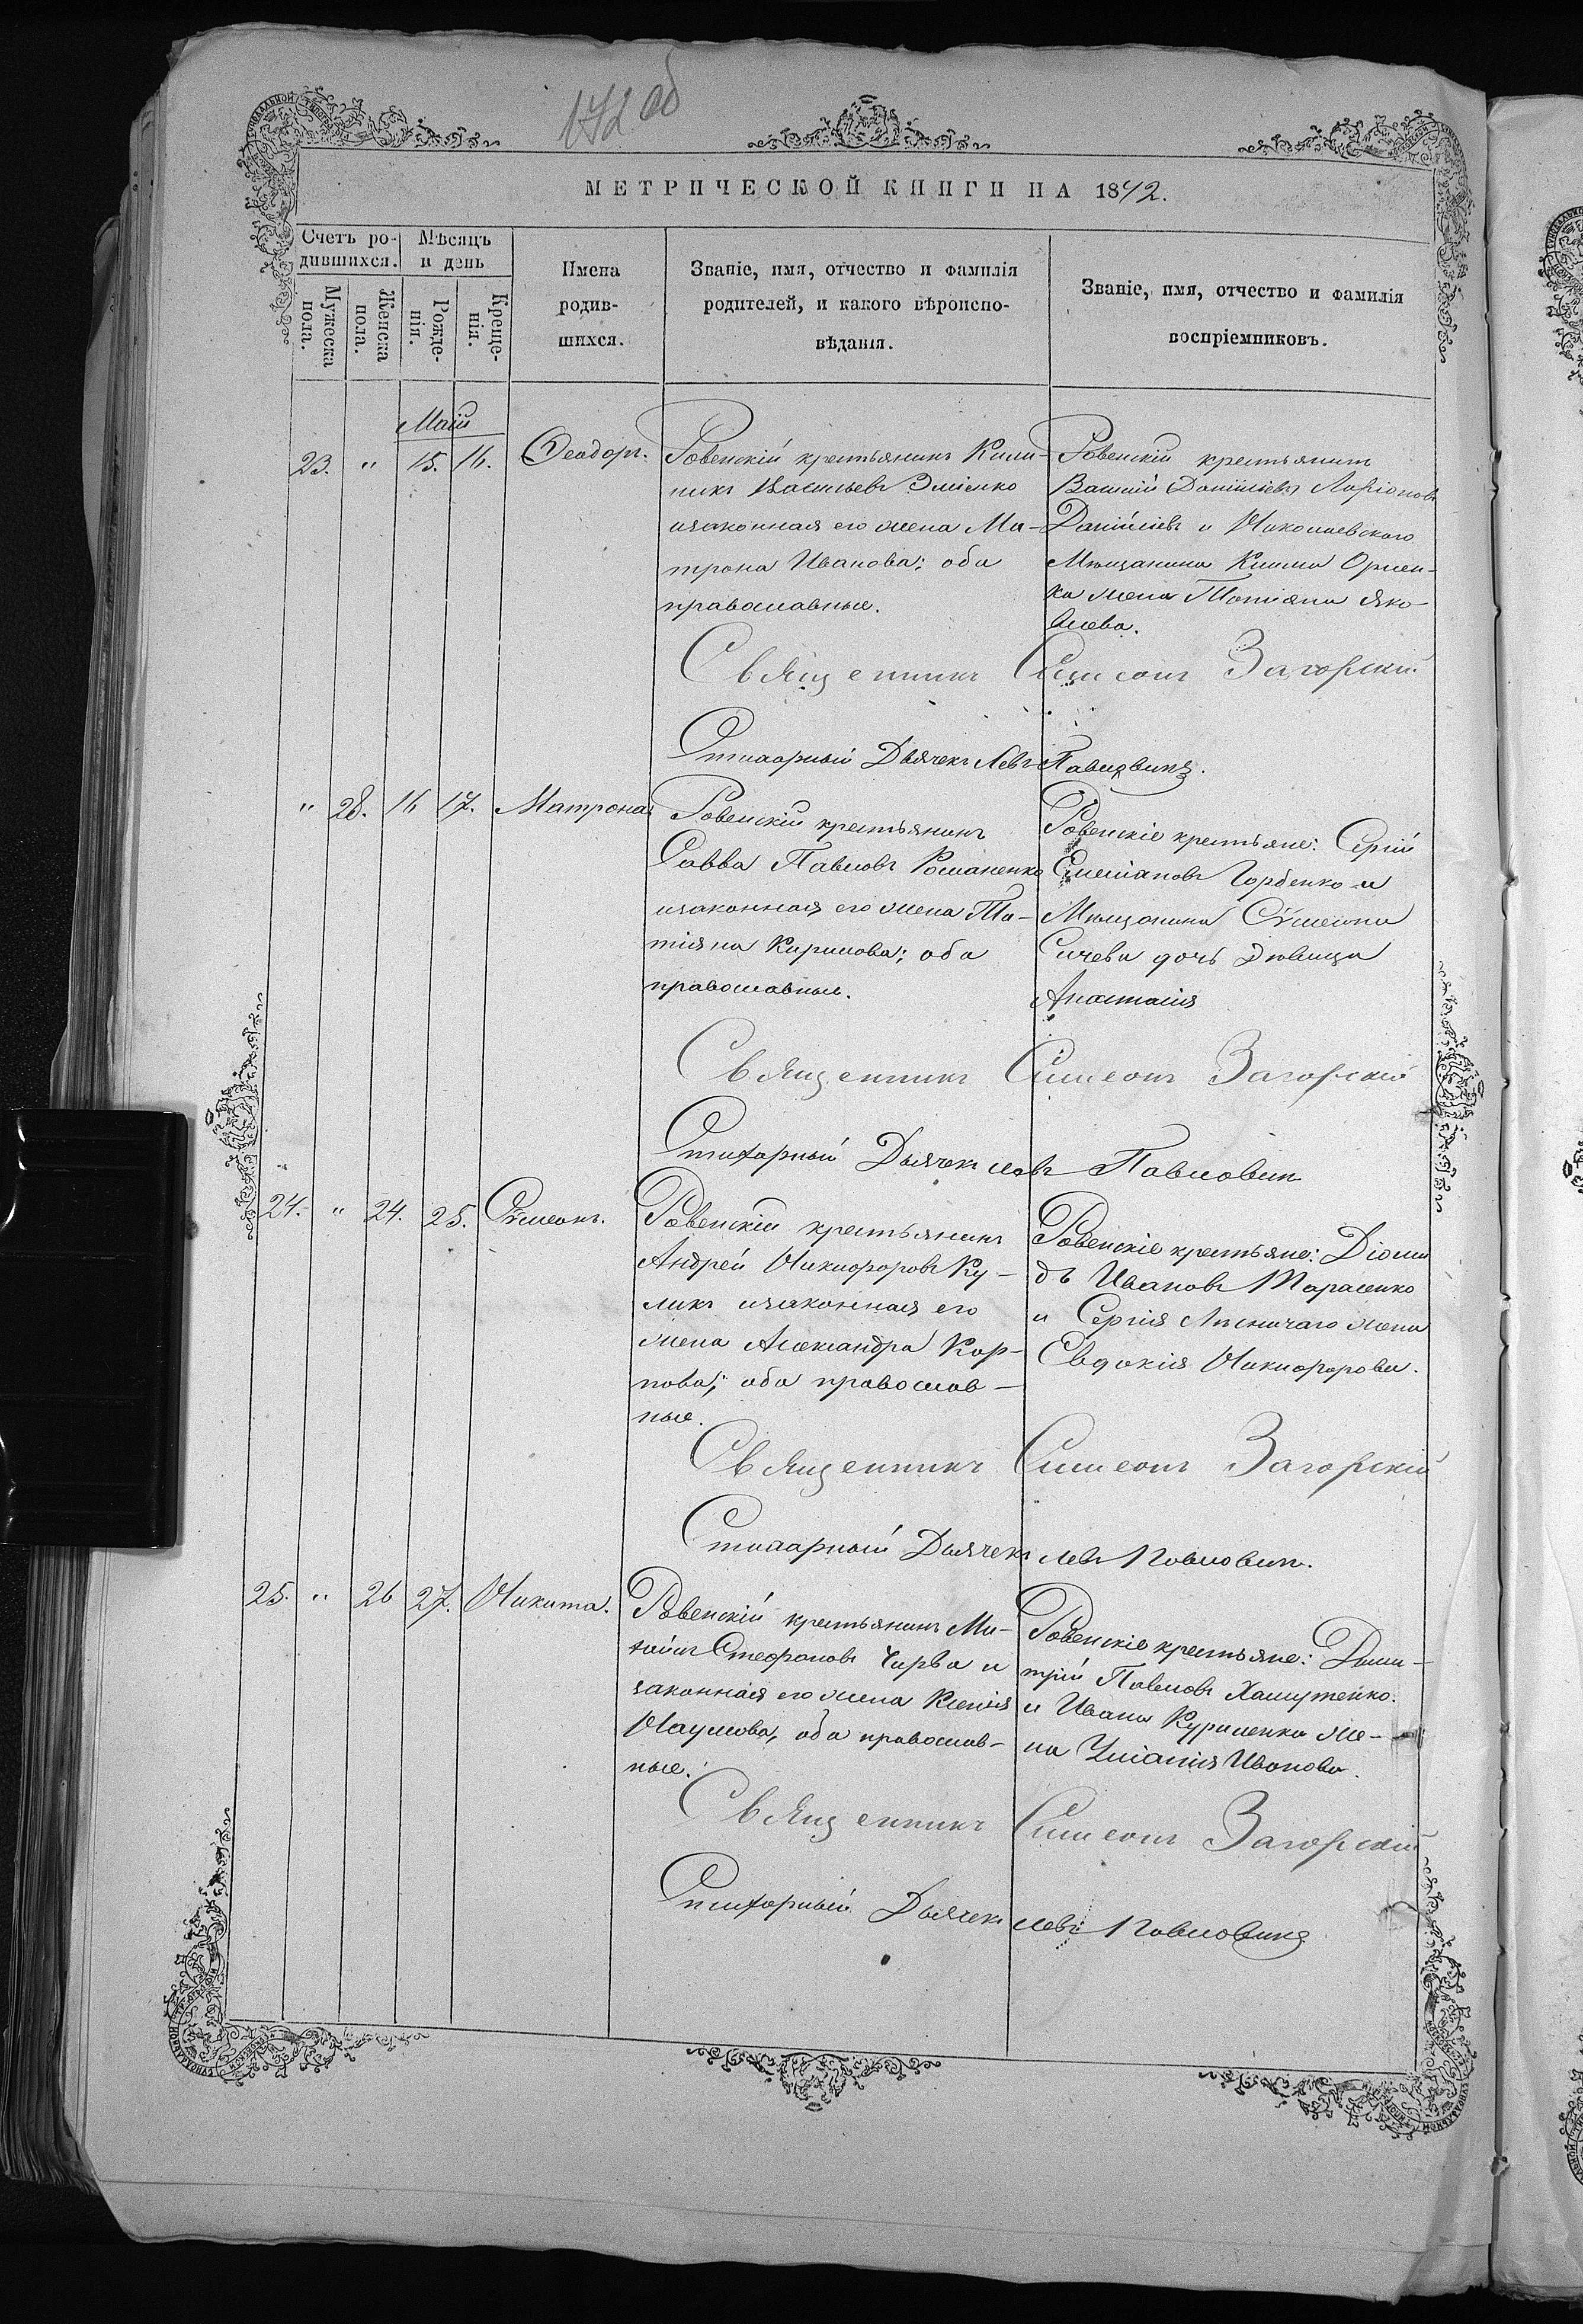 172 об
МЕТРИЧЕСКОЙ КНИГИ НА 1842.
Счетъ ро-
дившихся.
Мѣсяцъ
и день
Мужеска
пола.
Женска
пола.
Рожде-
нія.
Креще-
нія.
Имена
родив-
шихся.
Званіе, имя, отчество и фамилія
родителей, и какого вѣроиспо-
вѣданія.
Званіе, имя, отчество и фамилія
воспріемниковъ.
Маій
23. " 15. 16. Ѳеодоръ.
Ровенскій крестьянинъ Кли-
никъ Васильевъ
изаконная его жена Ма-
трона Иванова; оба
православные.
Ровенскій крестьянинъ
Даніиловъ и Николаевского
Мѣщанина
жена Татіяна Яко-
влева.
Священникъ Симеонъ Загорскій
Стихарный Дьячекъ Левъ Павловичъ.
" 28. 16 17. Матрона
Ровенскій крестьянинъ
Савва Павловъ Романенко
изаконная его жена Та-
тіяна Кирилова; оба
православные.
Ровенскіе крестьяне: Сергій
Емеліановъ Горбенко и
Мѣщанина Сѵмеона
Сичева дочь Дѣвица
Анастасія
Священникъ Симеонъ Загорскій
Стихарный Дьячекъ Левъ Павловичъ
24. " 24. 25. Сѵмеонъ.
Ровенскій крестьянинъ
Андрей Никифоровъ Ку-
ликъ изаконная его
жена Александра Кар-
пова; оба православ-
ные.
Ровенскіе крестьяне: Діоми
дъ Ивановъ Тарасенко
и Сергія Лѣсничаго жена
Евдокія Никифорова.
Священникъ Симеонъ Загорскій
Стихарный Дьячекъ Левъ Павловичъ.
25. " 26 27. Никита.
Ровенскій крестьянинъ Ми-
хаилъ Стефановъ Чирва и
законная его жена Ксенія
Наумова, оба православ-
ные.
Ровенскіе крестьяне: Дими-
трій Павловъ
и Ивана Куриленка же-
на Уліанія Иванова.
Священникъ Симеонъ Загорскій
Стихарный Дьячекъ Левъ Павловичъ